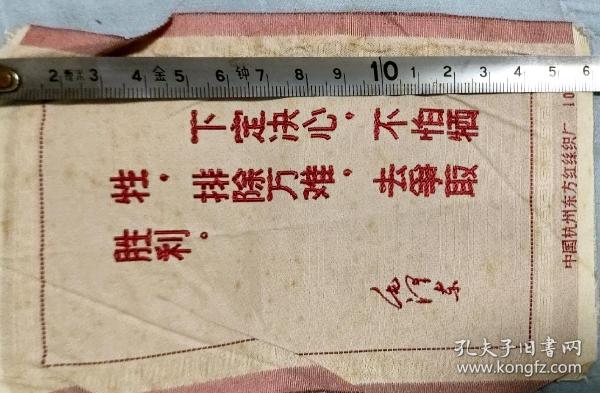 2 毫米 3 4 金 5 6 钟 7 8 9 10 1 2 3 4 5 6
下定决心，不怕牺
牲，排除万难，去爭取
胜利。
毛泽东
中国杭州东方红丝织厂 10
孔夫子旧书网
www.kongfz.com